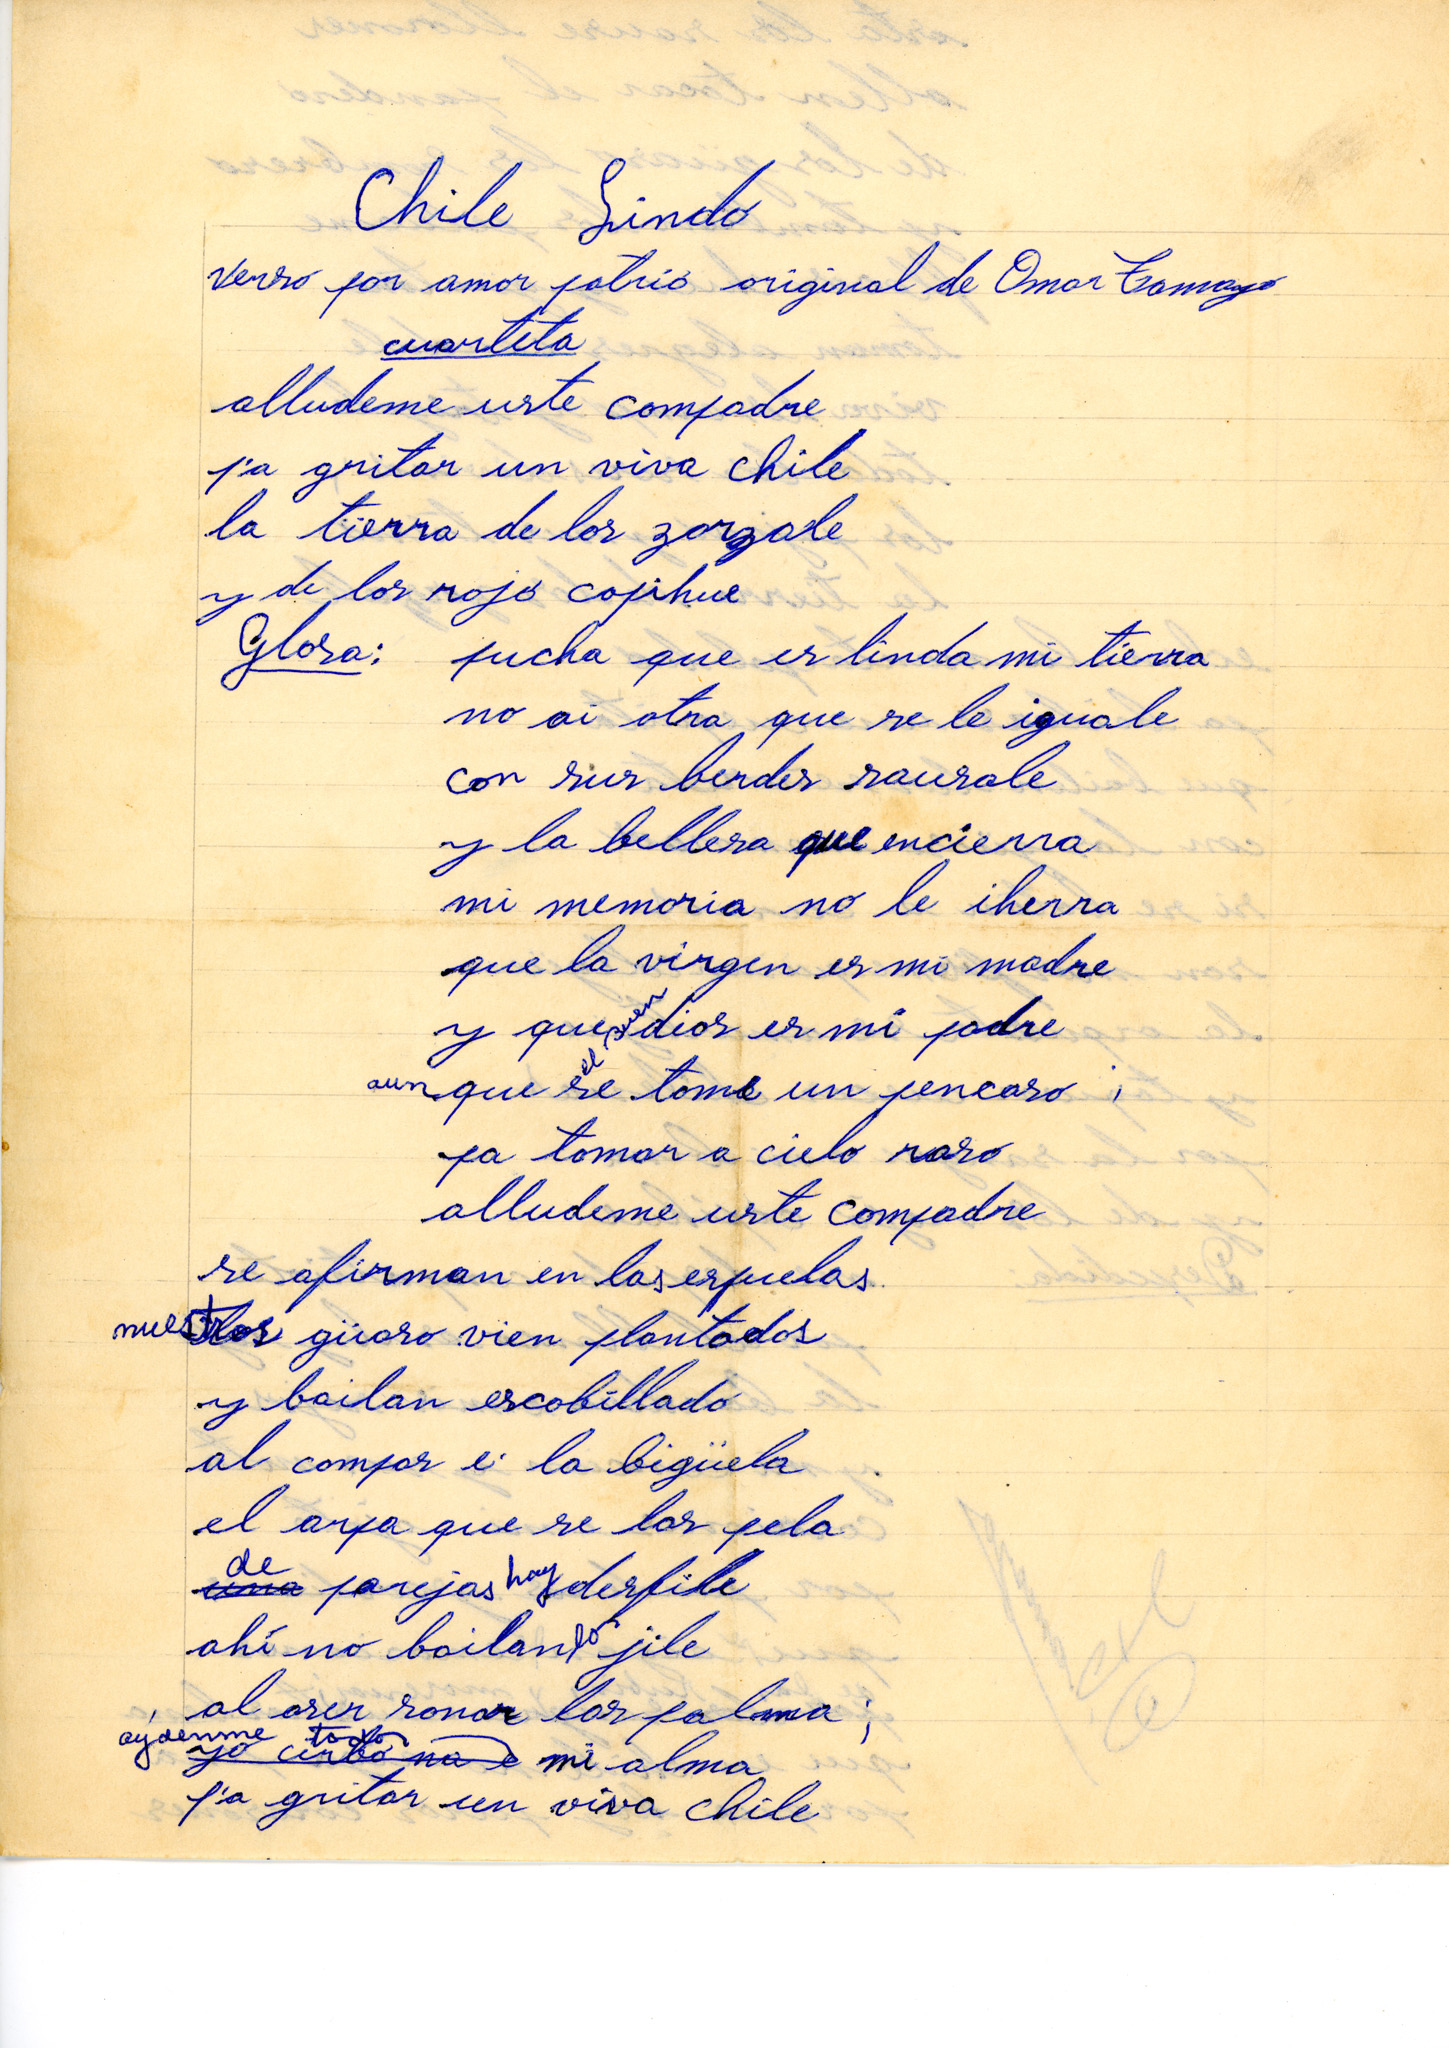 Chile Lindo
verso por amor patrio original de Omar Tamayo
cuarteta
alludeme uste compadre
p'a gritar un viva chile
la tierra de los zorzale
y de los rojo copihue
Glosa: pucha que es linda mi tierra
no ai otra que se le iguale
con sus berdes sausale
y la bellesa que encierra
mi memoria no le iherra
que la virgen es mi madre
y que dios es mi padre
aunque él se tome un pencaso ;
pa tomar a cielo raso
alludeme uste compadre
se afirman en las espuelas
nuestros güaso vien plantados
y bailan escobillado
al compas e' la bigüela
el arpa que se las pela
de
una parejas hay desfile
ahí no bailan lo jile
al aser sonar las palma ;
aydenme todo
yo cinbo na e mi alma
p'a gritar un viva chile